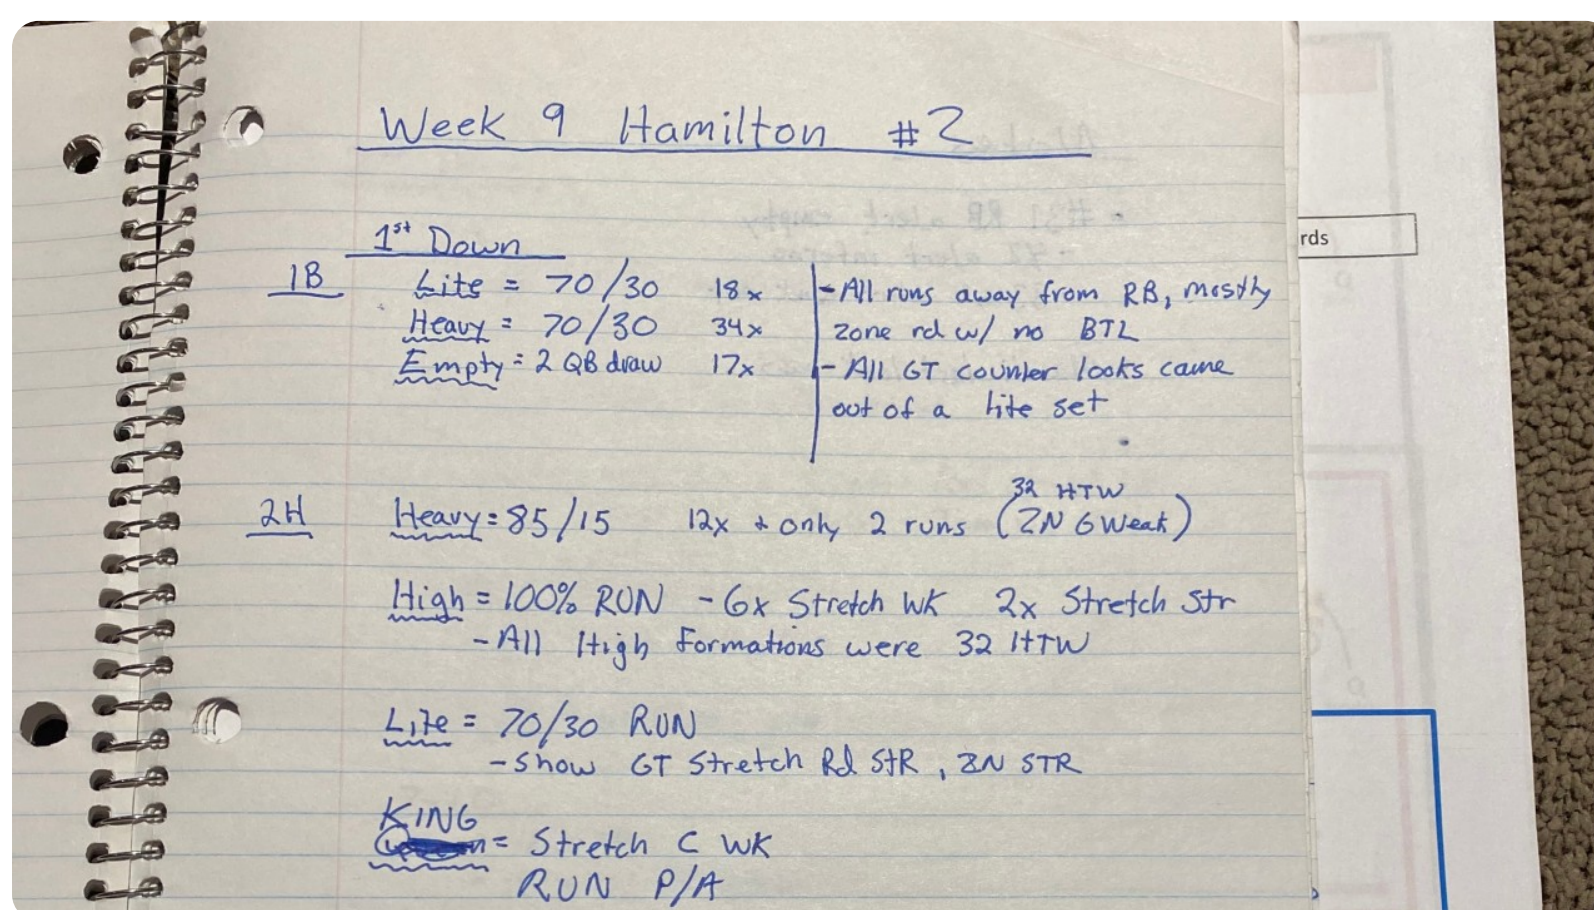 Week 9 Hamilton #2
1st Down
1B
Lite = 70/30 18x
Heavy = 70/30 34x
Empty = 2 QB draw 17x
- All runs away from RB, mostly
zone rd w/ no BTL
- All GT counter looks came
out of a lite set
rds
2H
32 HTW
Heavy = 85/15 12x + only 2 runs (ZN 6 Weak)
High = 100% RUN - 6x Stretch WK 2x Stretch Str
- All High Formations were 32 HTW
Lite = 70/30 RUN
- Show GT Stretch Rd StR, ZN STR
KING
= Stretch C WK
RUN P/A